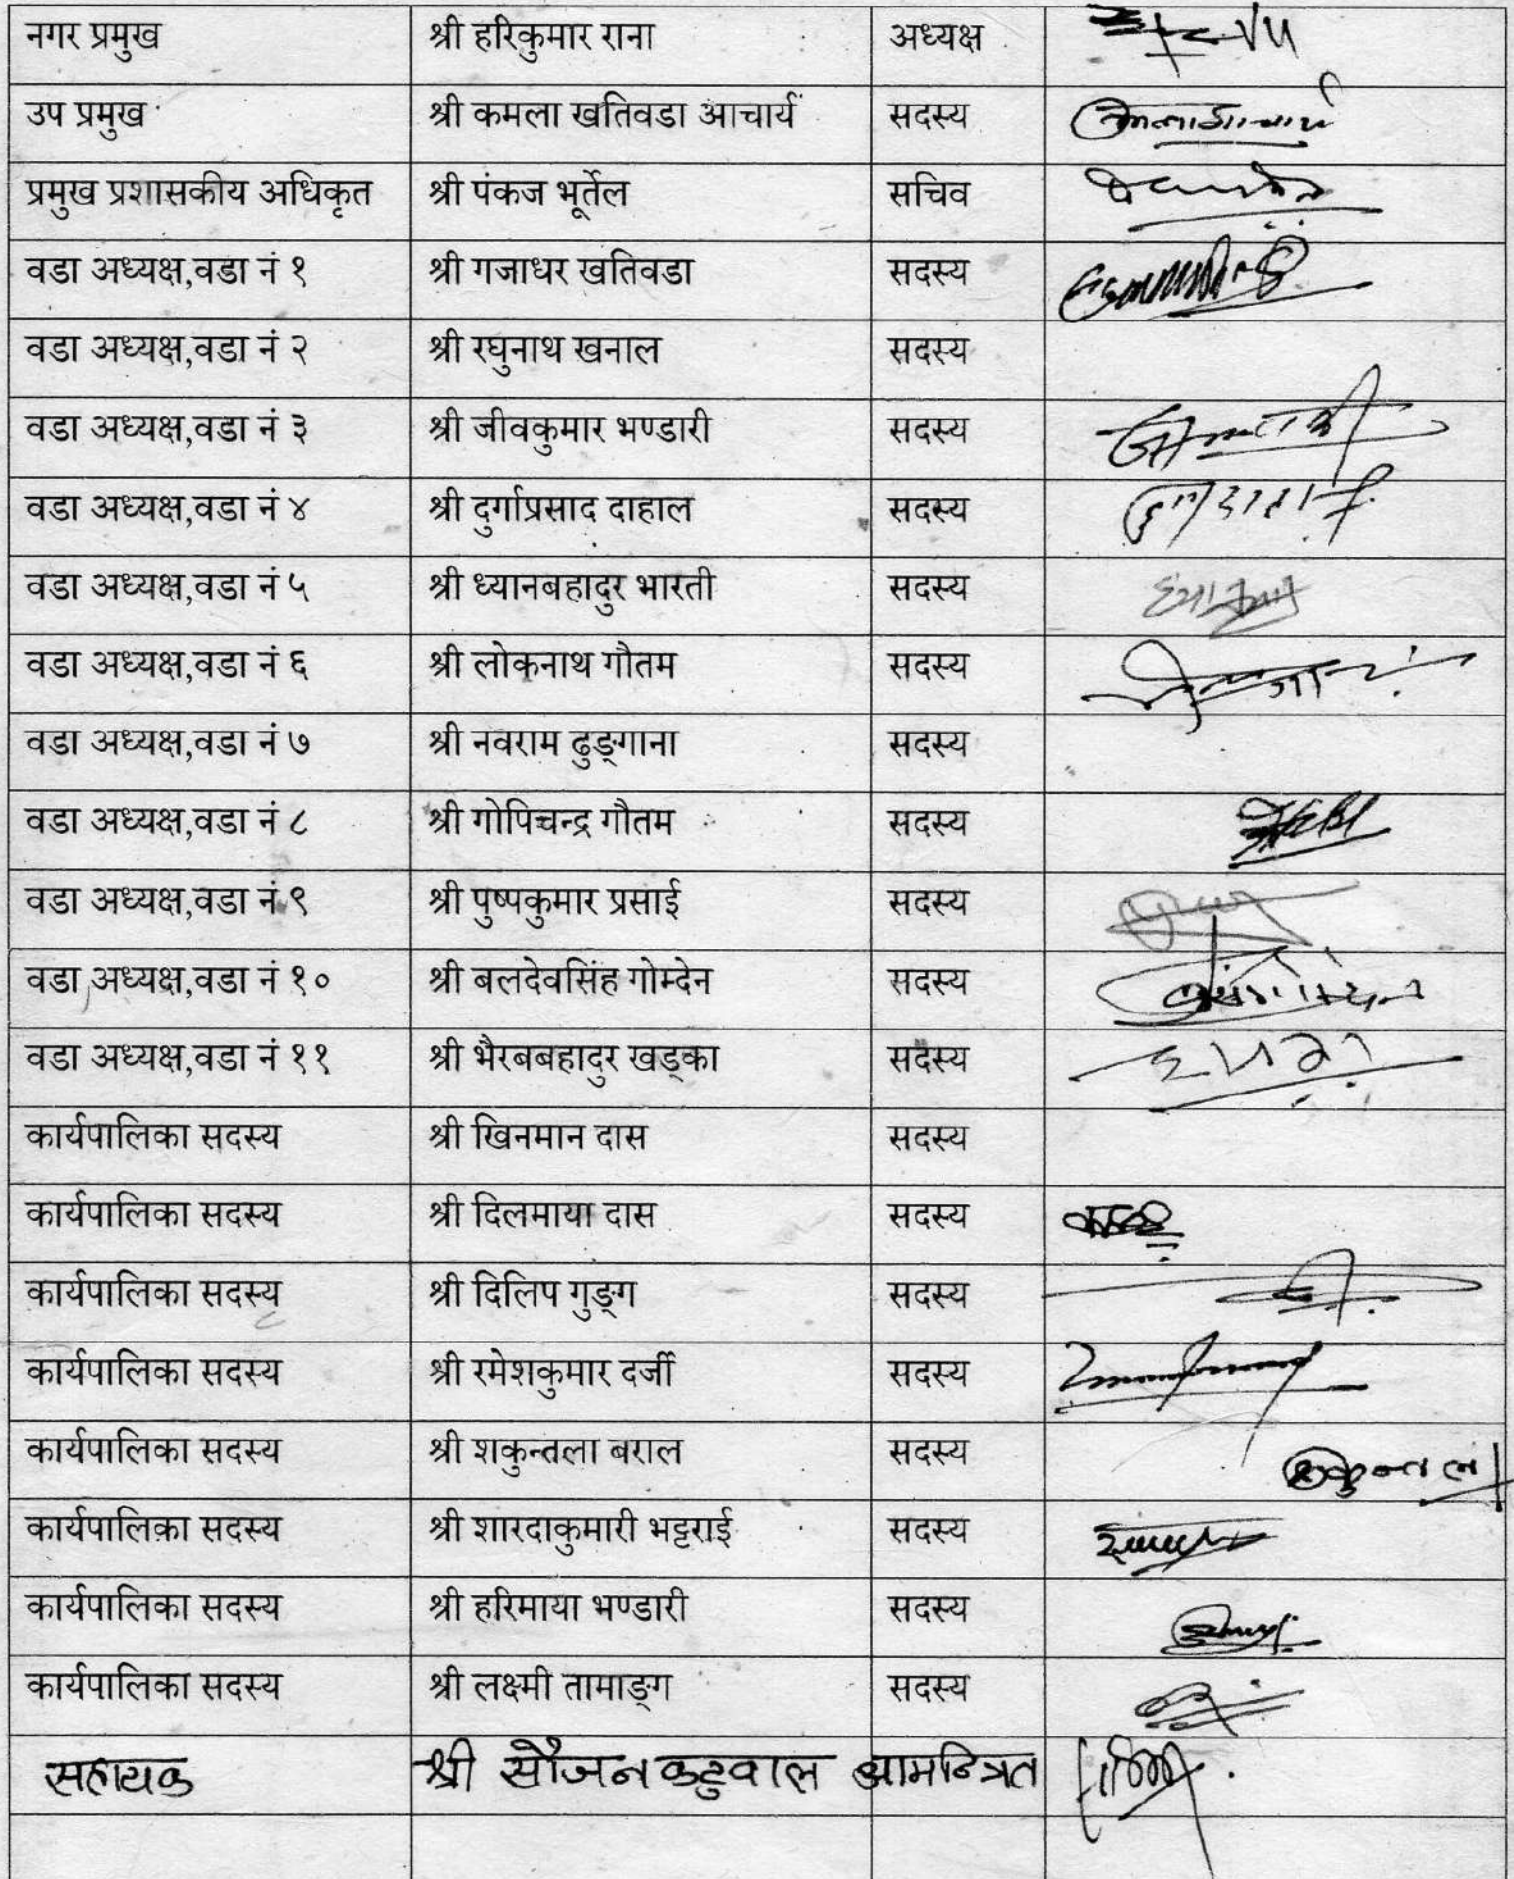 नगर प्रमुख श्री हरिकुमार राना अध्यक्ष
उप प्रमुख श्री कमला खतिवडा आचार्य सदस्य
प्रमुख प्रशासकीय अधिकृत श्री पंकज भूर्तेल सचिव
वडा अध्यक्ष,वडा नं १ श्री गजाधर खतिवडा सदस्य
वडा अध्यक्ष,वडा नं २ श्री रघुनाथ खनाल सदस्य
वडा अध्यक्ष,वडा नं ३ श्री जीवकुमार भण्डारी सदस्य
वडा अध्यक्ष,वडा नं ४ श्री दुर्गाप्रसाद दाहाल सदस्य
वडा अध्यक्ष,वडा नं ५ श्री ध्यानबहादुर भारती सदस्य
वडा अध्यक्ष,वडा नं ६ श्री लोकनाथ गौतम सदस्य
वडा अध्यक्ष,वडा नं ७ श्री नवराम ढुङ्गाना सदस्य
वडा अध्यक्ष,वडा नं ८ श्री गोपिचन्द्र गौतम सदस्य
वडा अध्यक्ष,वडा नं ९ श्री पुष्पकुमार प्रसाई सदस्य
वडा अध्यक्ष,वडा नं १० श्री बलदेवसिंह गोम्देन सदस्य
वडा अध्यक्ष,वडा नं ११ श्री भैरबबहादुर खड्का सदस्य
कार्यपालिका सदस्य श्री खिनमान दास सदस्य
कार्यपालिका सदस्य श्री दिलमाया दास सदस्य
कार्यपालिका सदस्य श्री दिलिप गुङ्ग सदस्य
कार्यपालिका सदस्य श्री रमेशकुमार दर्जी सदस्य
कार्यपालिका सदस्य श्री शकुन्तला बराल सदस्य शकुन्तला
कार्यपालिका सदस्य श्री शारदाकुमारी भट्टराई सदस्य
कार्यपालिका सदस्य श्री हरिमाया भण्डारी सदस्य
कार्यपालिका सदस्य श्री लक्ष्मी तामाङ्ग सदस्य
सहायक श्री सौजन कटुवाल आमन्त्रित